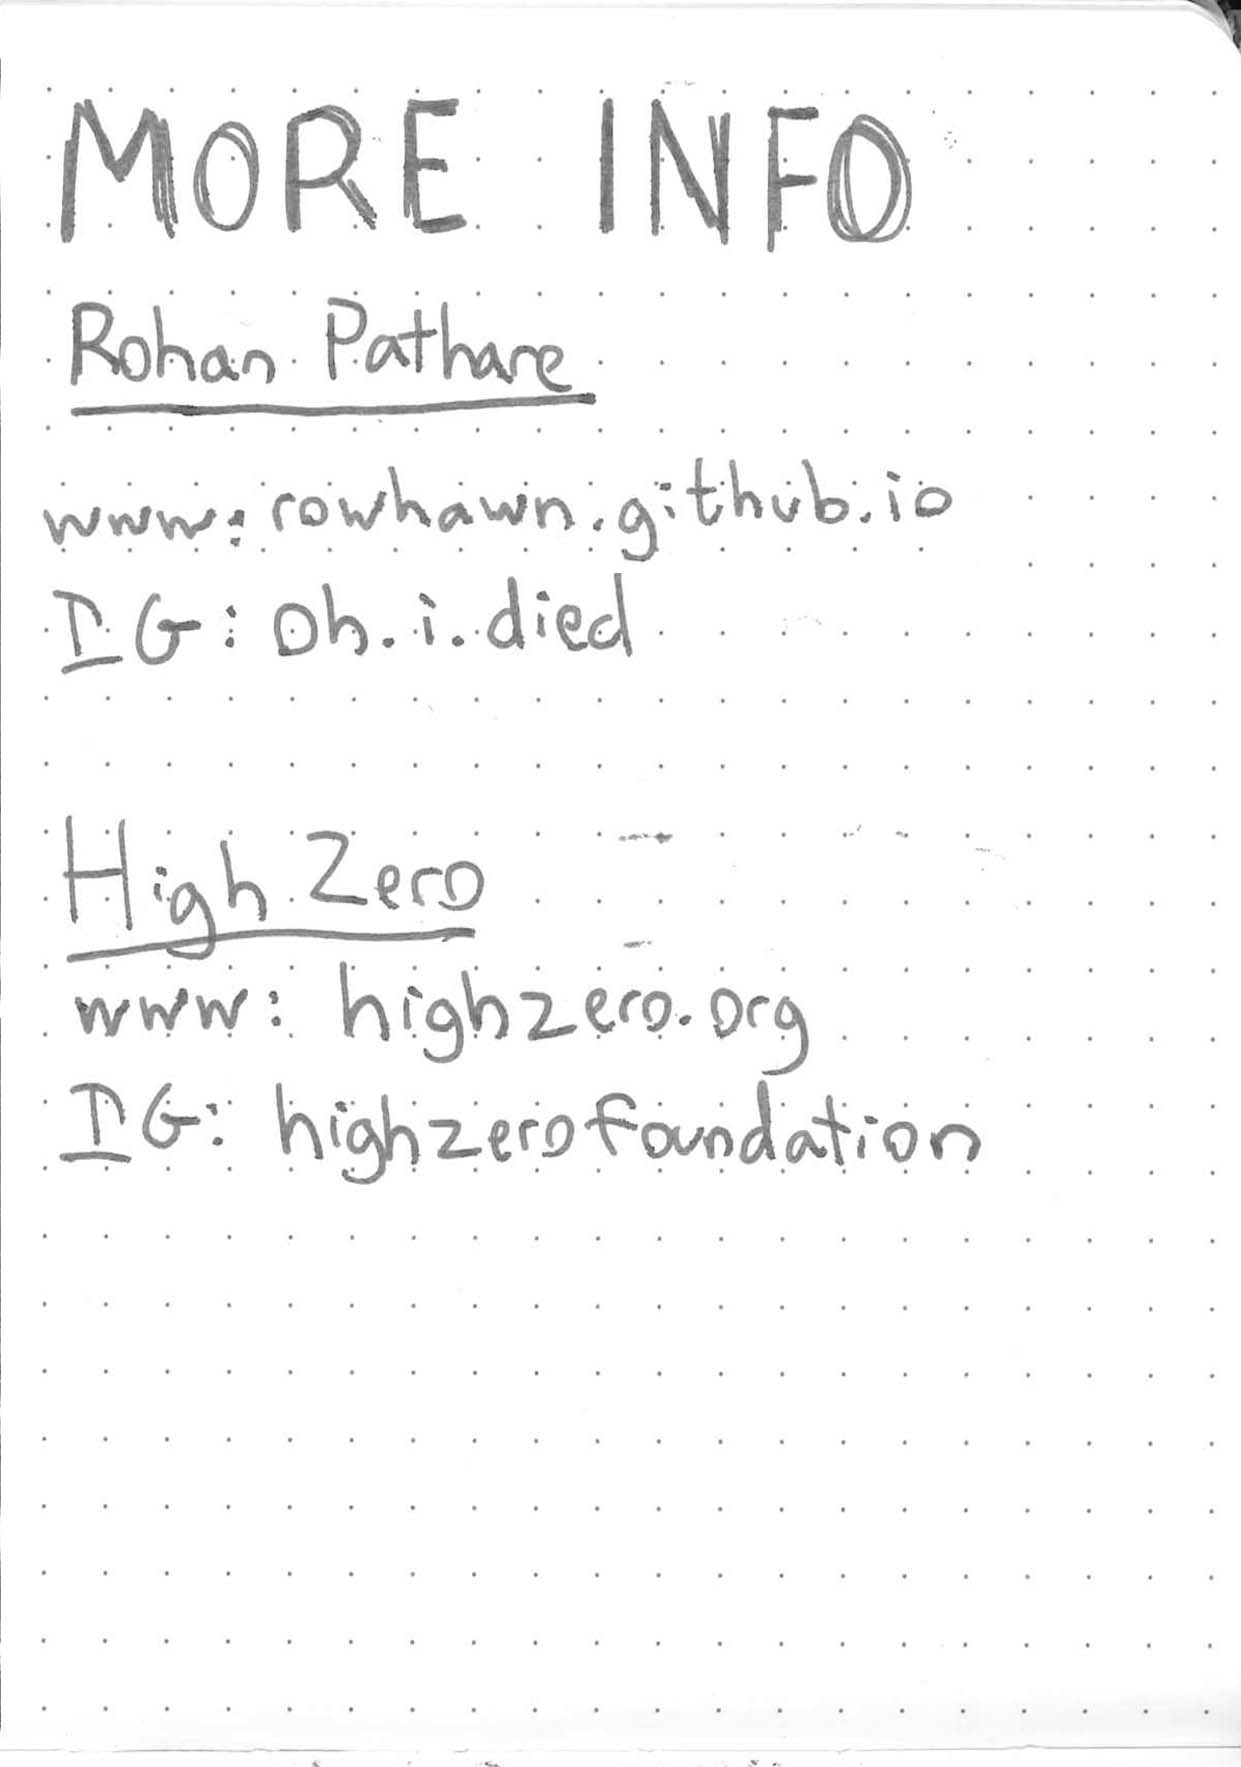 MORE INFO
Rohan Pathare
www: rowhawn.github.io
IG: oh.i.died
High Zero
www: highzero.org
IG: highzerofoundation